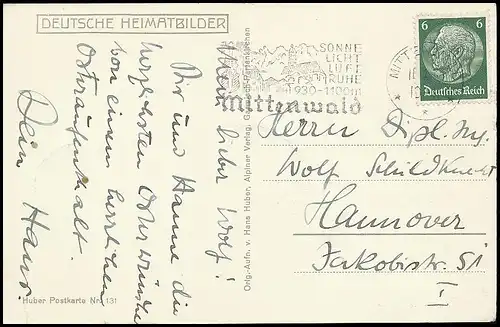 DEUTSCHE HEIMATBILDER
Mein lieber Wolf!
Dir und Hanne die
herzlichsten Ostergrüsse
von einem herrlichen
Osteraufenthalt.
Dein Hans
Huber Postkarte Nr. 131
Orig.-Aufn. v. Hans Huber, Alpiner Verlag, Garmisch-Partenkirchen
SONNE
LICHT
LUFT
RUHE
930-1100m
Mittenwald
MITTE
6 6
Deutsches Reich
Herrn Dipl. Ing.
Wolf Schildknecht
Hannover
Jakobistr. 51
I